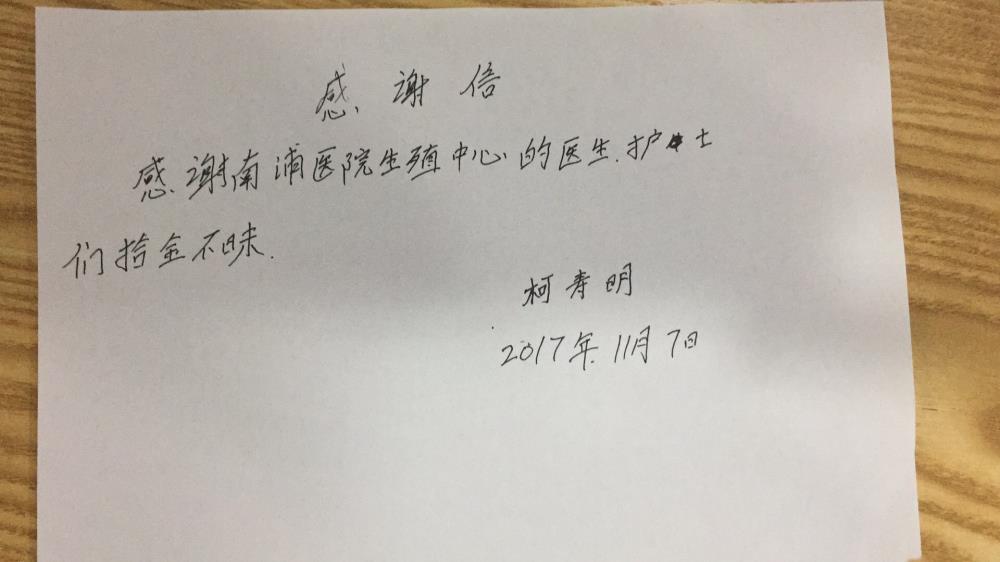 感谢信
感谢南浦医院生殖中心的医生.护士
们拾金不昧.
柯寿明
2017年11月7日